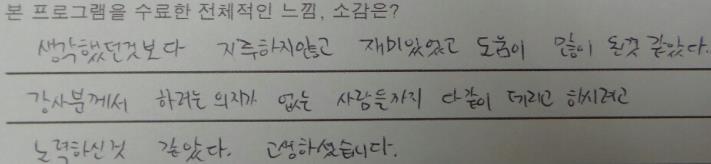 본 프로그램을 수료한 전체적인 느낌, 소감은?
생각했던것보다 지루하지않고 재미있었고 도움이 많이 된것 같았다.
강사분께서 하려는 의지가 없는 사람들까지 다같이 데리고 하시려고
노력하신것 같았다. 고생하셨습니다.